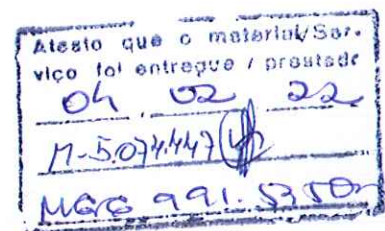 Atesto que o material/Ser-
viço foi entregue / prestado
04 02 22
M-5.074.447
991.